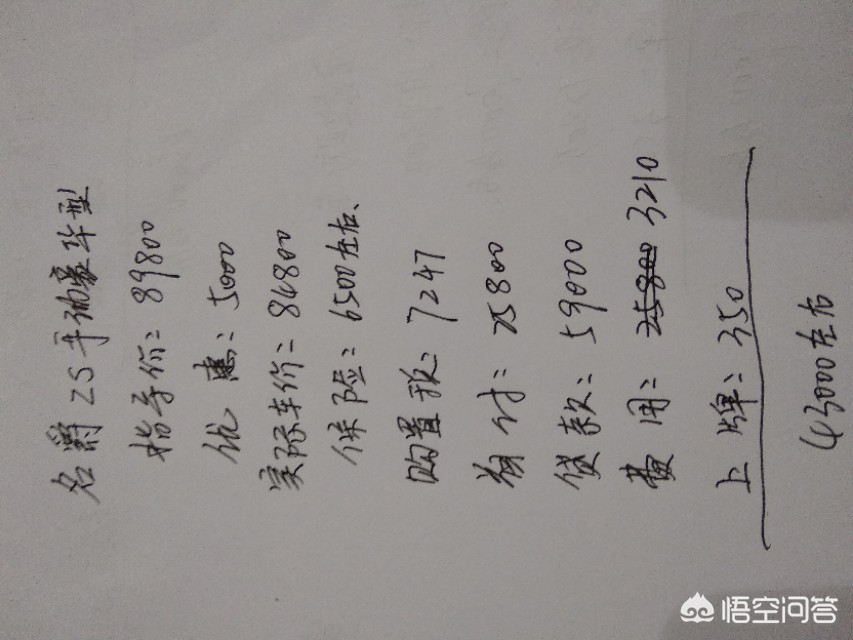 名爵 ZS 手动豪华型
指导价：89800
优惠：5000
实际车价：84800
保险：6500左右、
购置税：7247
首付：25800
贷款：59000
费用：25800 3210
上牌：350
43000左右
悟空问答